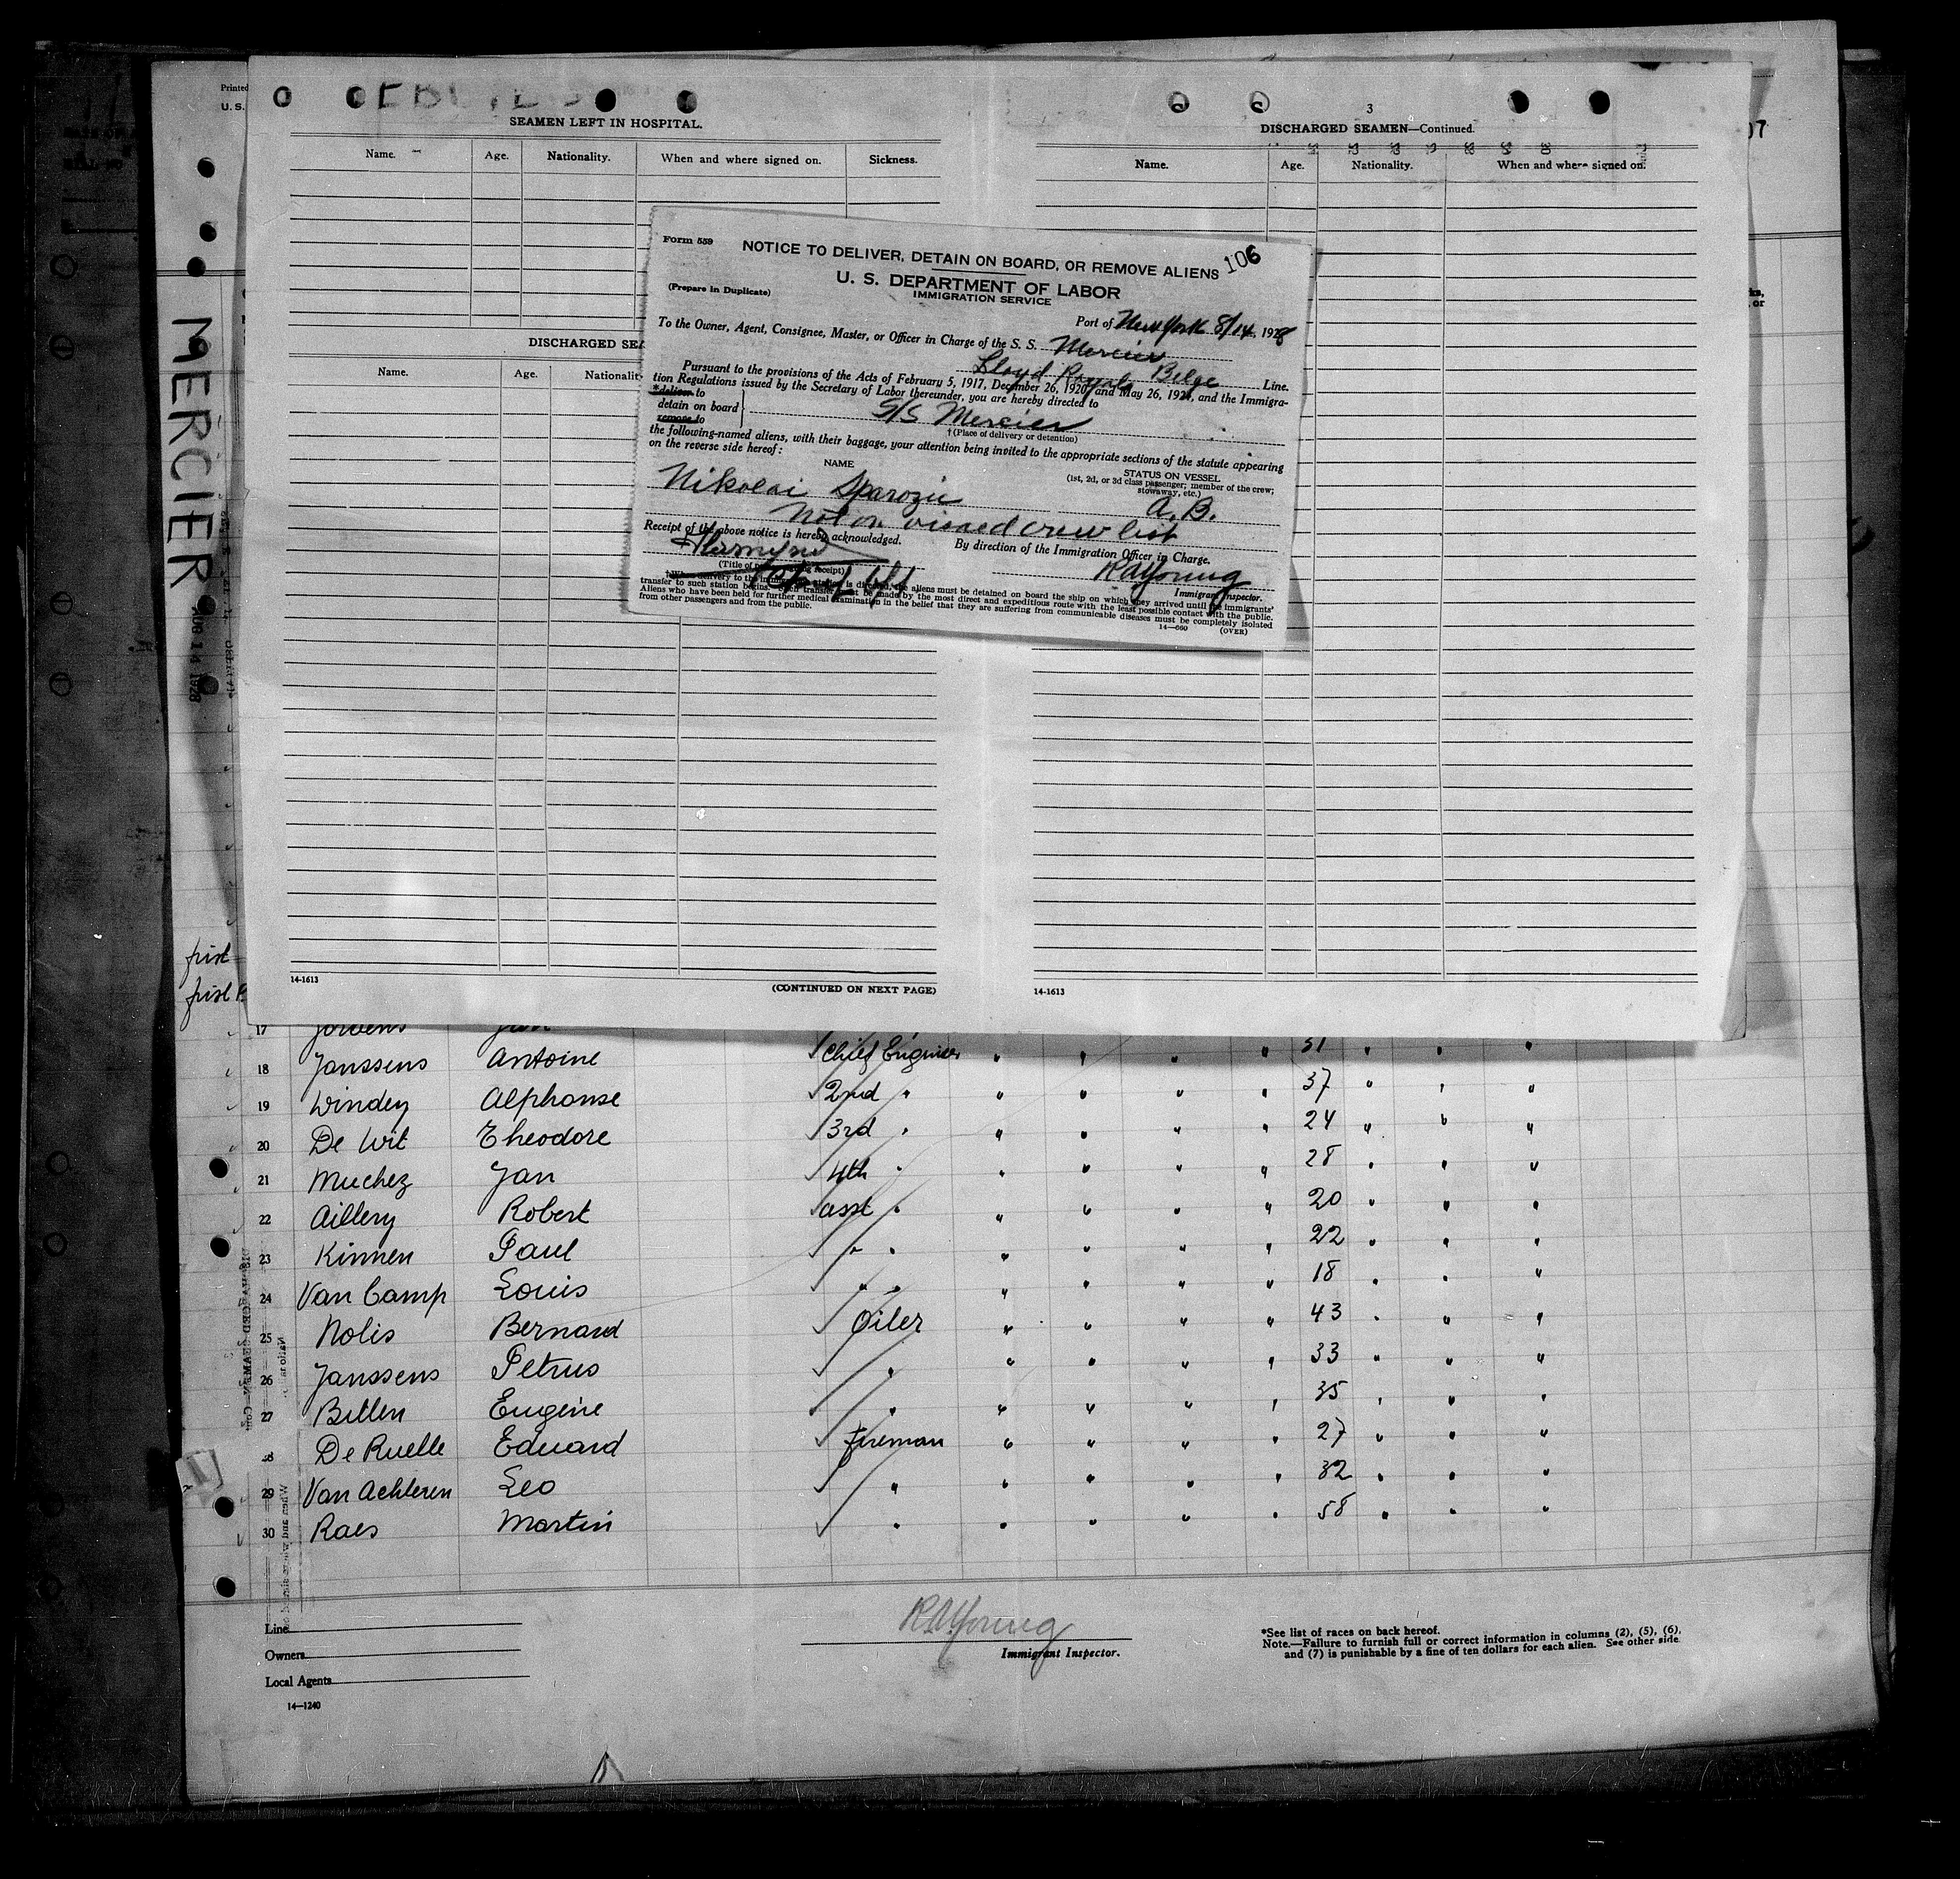 Printed
U. S.
MERCIER
AUG 14 1928
SEAMEN LEFT IN HOSPITAL.
Name. Age. Nationality. When and where signed on. Sickness.
DISCHARGED SEA
Name. Age. Nationalit
14-1613
(CONTINUED ON NEXT PAGE)
3
DISCHARGED SEAMEN—Continued.
Name. Age. Nationality. When and where signed on.
14-1613
07
Form 559
106
NOTICE TO DELIVER, DETAIN ON BOARD, OR REMOVE ALIENS
U. S. DEPARTMENT OF LABOR
(Prepare in Duplicate)
IMMIGRATION SERVICE
Port of New York 8/14, 1928
To the Owner, Agent, Consignee, Master, or Officer in Charge of the S. S. Mercier
Lloyd Royale Belge Line.
Pursuant to the provisions of the Acts of February 5, 1917, December 26, 1920, and May 26, 1924, and the Immigra-
tion Regulations issued by the Secretary of Labor thereunder, you are hereby directed to
*deliver to
detain on board
remove to
S/S Mercier
†(Place of delivery or detention)
the following-named aliens, with their baggage, your attention being invited to the appropriate sections of the statute appearing
on the reverse side hereof:
NAME
STATUS ON VESSEL
(1st, 2d, or 3d class passenger; member of the crew;
stowaway, etc.)
Nikolai Sparozie A. B.
Not on visaed crew list
Receipt of the above notice is hereby acknowledged.
By direction of the Immigration Officer in Charge,
RAYoung
(Title of receipt)
Immigrant Inspector.
†When delivery to the immigration station is directed, the aliens must be detained on board the ship on which they arrived until the immigrants'
transfer to such station begins. Such transfer must be made by the most direct and expeditious route with the least possible contact with the public.
Aliens who have been held for further medical examination in the belief that they are suffering from communicable diseases must be completely isolated
from other passengers and from the public.
14—660
(OVER)
first
first
17
18 Janssens Antoine Chief Engineer " " " " 31 " " "
19 Winden Alphonse 2nd " " " " " 37 " " "
20 De Wit Theodore 3rd " " " " " 24 " " "
21 Muchez Jan 4th " " " " " 28 " " "
22 Aillery Robert asst " " " " " 20 " " "
23 Kinnen Paul " " " " " " 22 " " "
24 Van Camp Louis " " " " " " 18 " " "
25 Nolis Bernard Oiler " " " " 43 " " "
26 Janssens Petrus " " " " " 33 " " "
27 Billen Eugène " " " " " 35 " " "
28 De Ruelle Eduard Fireman " " " " 27 " " "
29 Van Achteren Leo " " " " " 32 " " "
30 Raes Martin " " " " " 58 " " "
Line
Owners
Local Agents
14—1240
RAYoung
Immigrant Inspector.
*See list of races on back hereof.
Note.—Failure to furnish full or correct information in columns (2), (5), (6),
and (7) is punishable by a fine of ten dollars for each alien. See other side